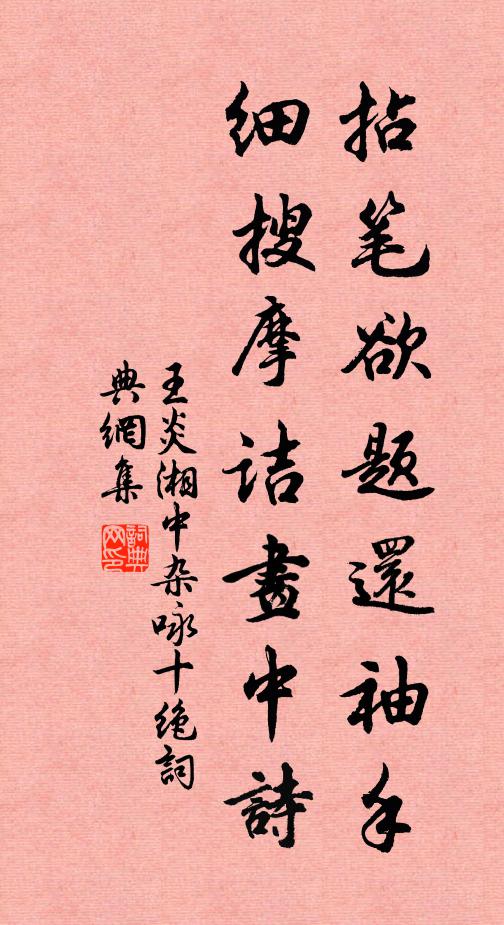 拈笔欲题還袖手
细搜摩诘畫中詩
王炎湘中杂咏十绝詞
典網集
詞典网印